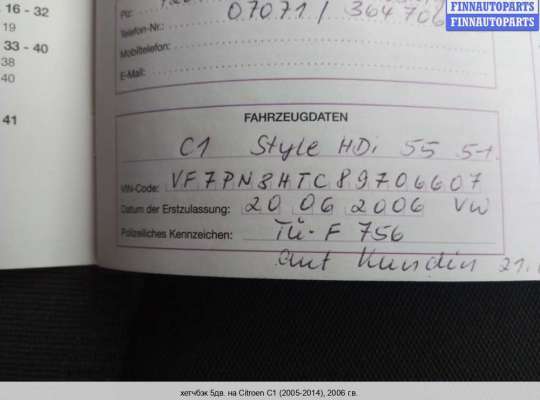 FINNAUTOPARTS
FINNAUTOPARTS
FINNAUTOPARTS
16 - 32
19
33 - 40
38
40
41
07071/ 364706
Telefon-Nr.:
Mobiltelefon:
E-Mail:
FAHRZEUGDATEN
C1 Style HDi 55 5-t.
VIN-Code: VF7PN8HTC89706607
Datum der Erstzulassung: 20 06 2006 VW
Polizeiliches Kennzeichen: TÜ-F 756
Kundin 21.
хетчбэк 5дв. на Citroen C1 (2005-2014), 2006 г.в.